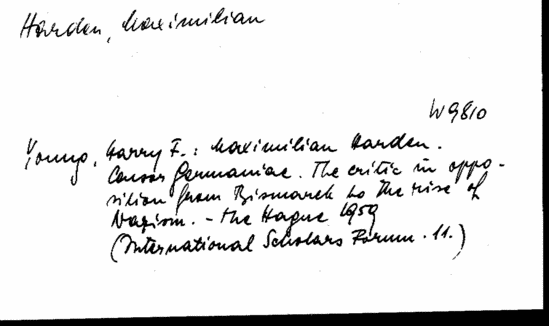 Harden, Maximilian
W 9810
Young, Harry F.: Maximilian Harden.
Censor Germaniae. The critic in oppo-
sition from Bismarck to the rise of
Nazism. - The Hague 1959
(International Scholars Forum. 11.)